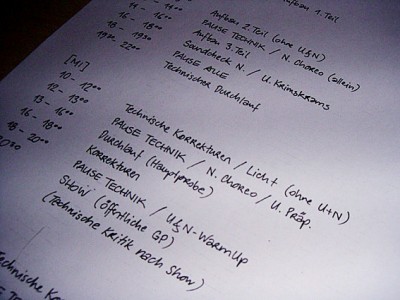 Aufbau 1. Teil
11 - 14⁰⁰ Aufbau 2. Teil (ohne U&N)
14 - 16⁰⁰ PAUSE TECHNIK / N. Choreo (allein)
16 - 18⁰⁰ Aufbau 3. Teil
18 - 19³⁰ Soundcheck N. / U. Krimskrams
19³⁰ PAUSE ALLE
- 22⁰⁰ Technischer Durchlauf
[MI]
10 - 12⁰⁰ Technische Korrekturen / Licht (ohne U+N)
12 - 13⁰⁰ PAUSE TECHNIK / N. Choreo / U. Präp.
13 - 16⁰⁰ Durchlauf (Hauptprobe)
16 - 18⁰⁰ Korrekturen
18 - 20⁰⁰ PAUSE TECHNIK / U&N-WarmUp
20⁰⁰ SHOW (öffentliche GP)
(Technische Kritik nach Show)
Technische Ko